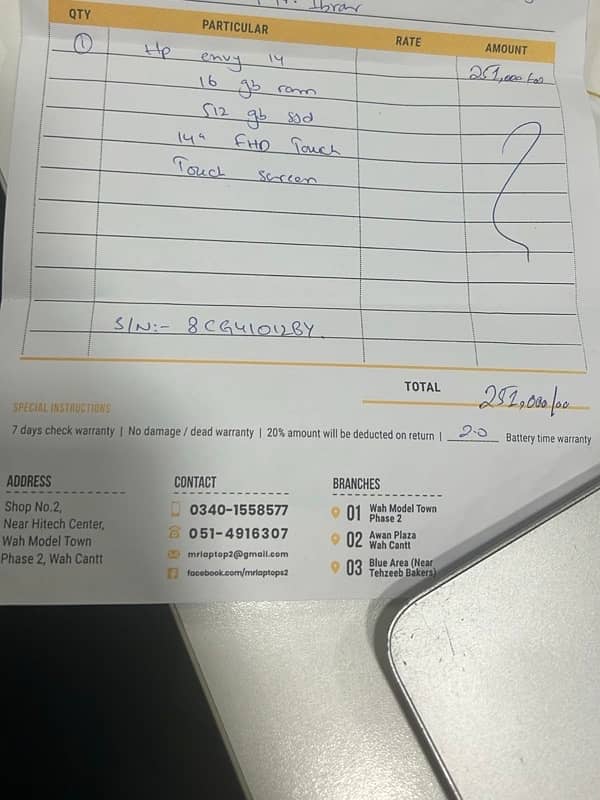 Ibrar
QTY PARTICULAR RATE AMOUNT
1 Hp envy 14 251,000/00
16 gb ram
512 gb ssd
14" FHD Touch
Touch screen
S/N:- 8CG41012BY.
TOTAL 251,000/00
SPECIAL INSTRUCTIONS
7 days check warranty | No damage / dead warranty | 20% amount will be deducted on return | Battery time warranty
ADDRESS
Shop No.2,
Near Hitech Center,
Wah Model Town
Phase 2, Wah Cantt
CONTACT
0340-1558577
051-4916307
mrlaptop2@gmail.com
facebook.com/mrlaptops2
BRANCHES
01 Wah Model Town
Phase 2
02 Awan Plaza
Wah Cantt
03 Blue Area (Near
Tehzeeb Bakers)